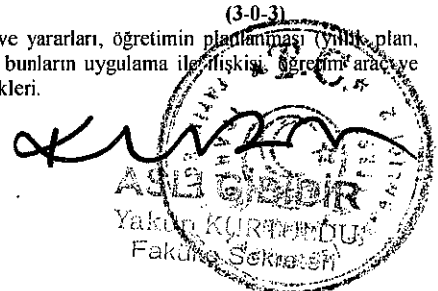 (3-0-3)
ve yararları, öğretimin planlanması (yıllık plan,
bunların uygulama ile ilişkisi, öğretim araç ve
kleri.
T.C.
ASLI GİBİDİR
Yakup
Fakülte Sekreteri